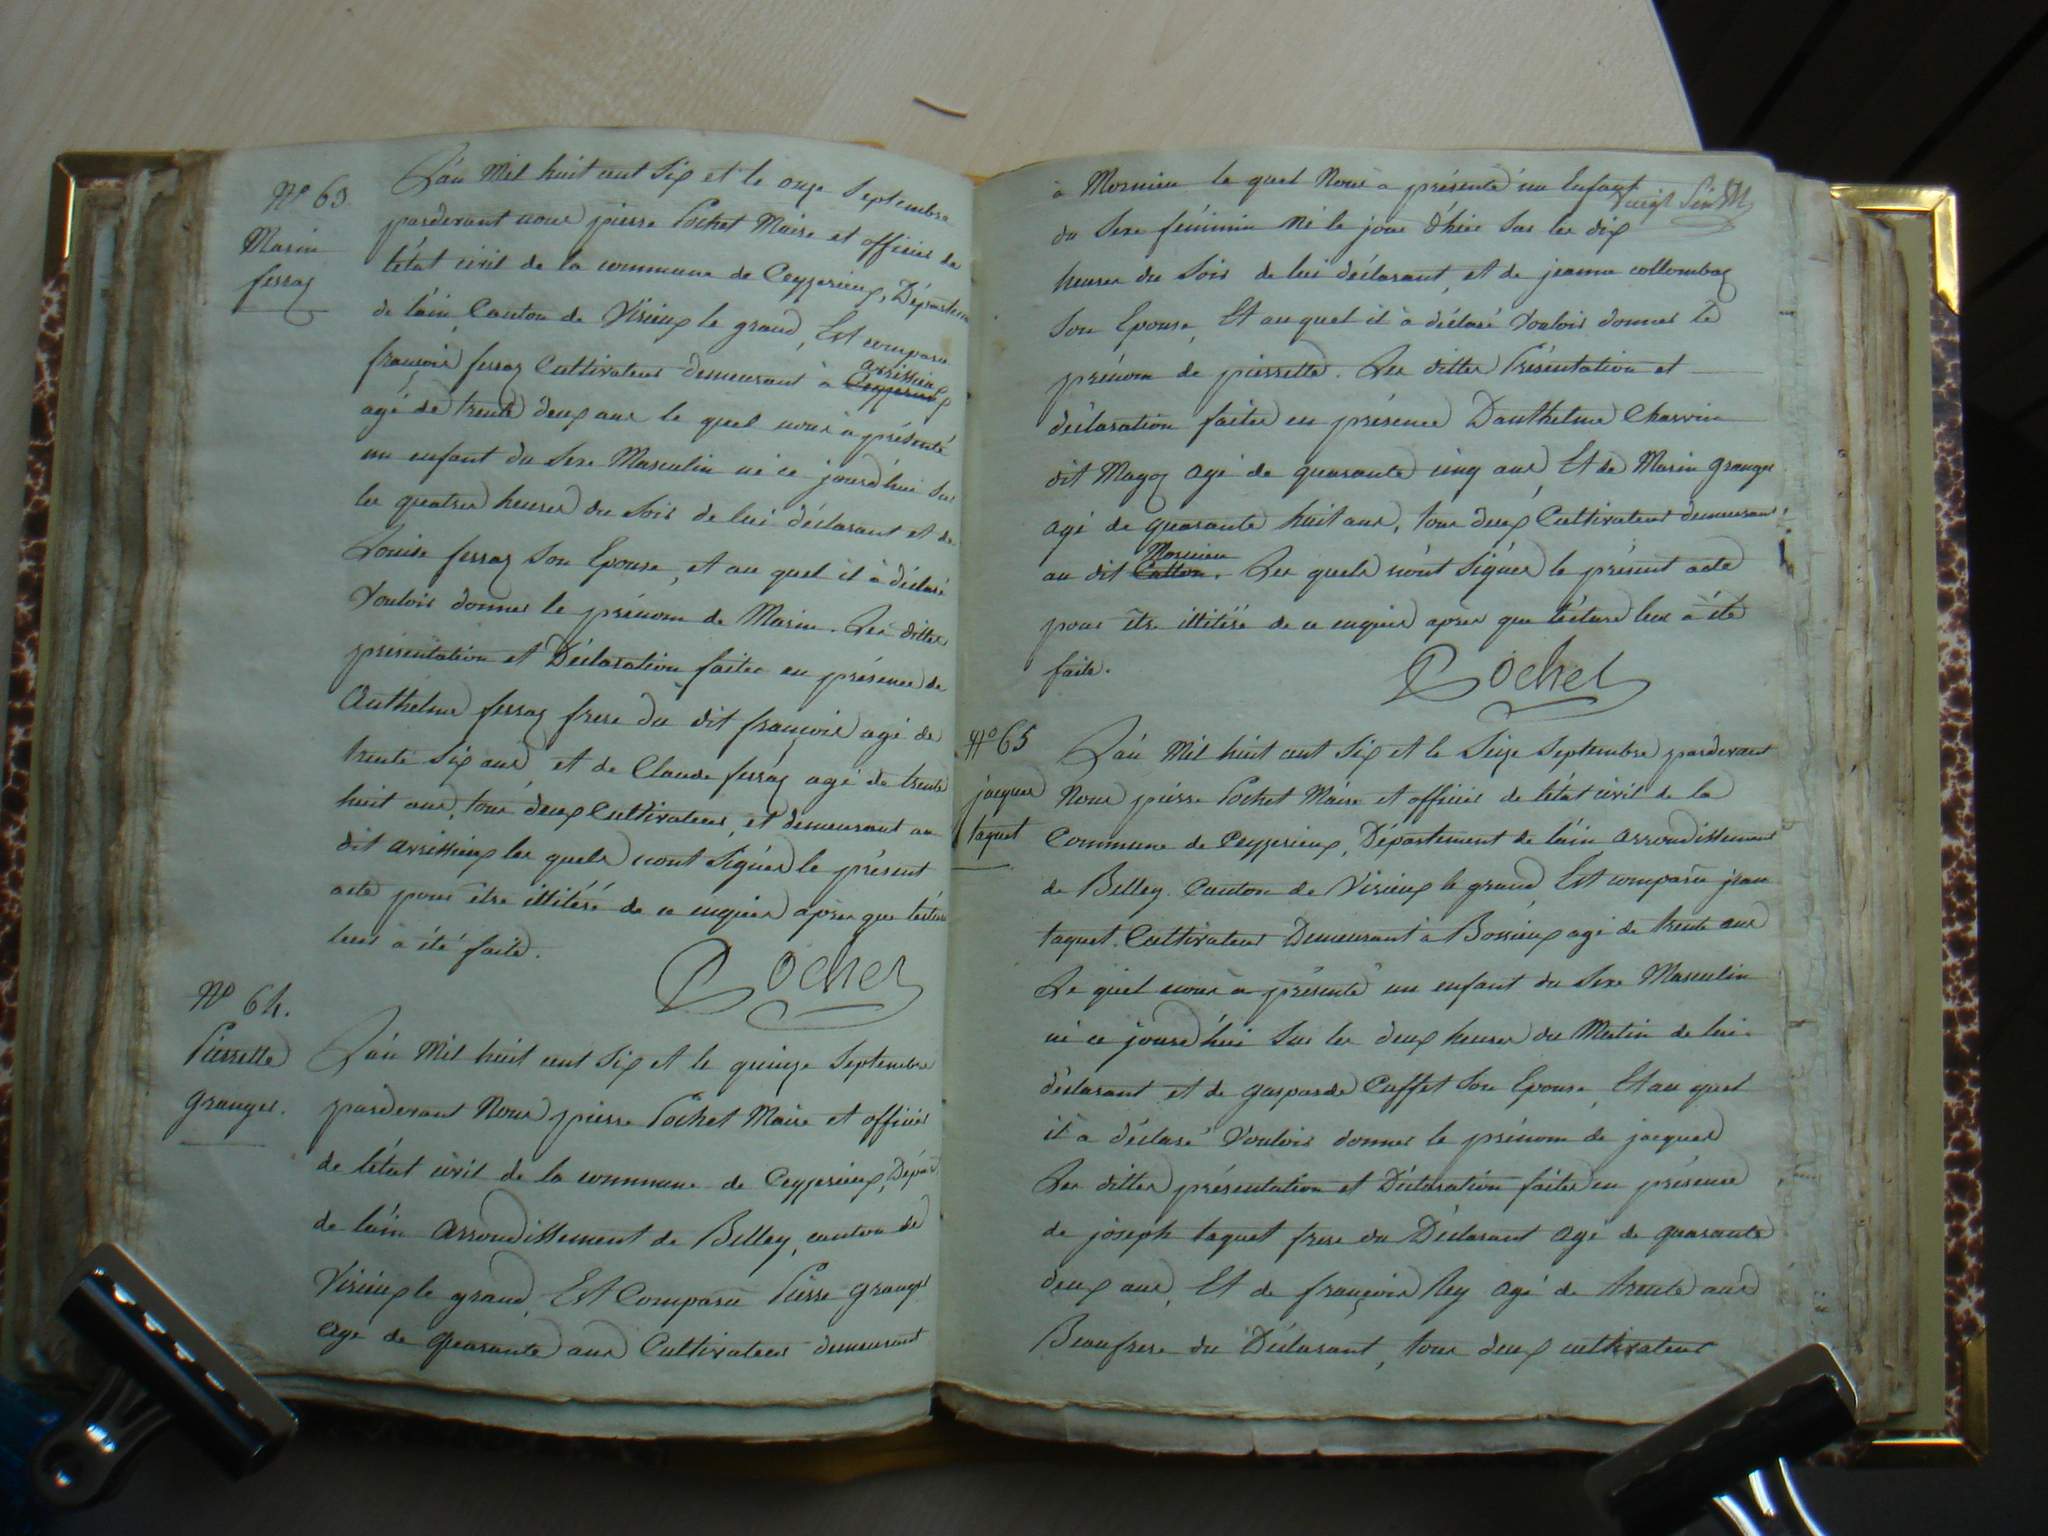 N° 63.
Marin
ferraz
L'an Mil huit cent Six et le onze Septembre
pardevant nous pierre Pochet Maire et officier de
l'état civil de la commune de Ceyzerieux, Départem
de l'ain, Canton de Virieux le grand, Est comparu
françois ferraz Cultivateur demeurant à Ceyzerieux
arvissieux
agé de trente deux ans le quel nous à présenté
un enfant du Sexe Masculin né ce jourd'hui sur
les quatres heures du Soir de lui déclarant et de
Louise ferraz Son Epouse, et au quel il à déclaré
Vouloir donner le prénom de Marin. Les dittes
présentation et Déclaration faites en présence de
Anthelme ferraz frere du dit françois agé de
trente Six ans, et de Claude ferraz agé de trente
huit ans, tous deux Cultivateur, et demeurant au
dit arvissieux les quels n'ont Signés le présent
acte pour être illitéré de ce enquier après que lecture
leur à été faite.
Pochet
N° 64.
Pierrette
granges.
L'an Mil huit cent Six et le quinze Septembre
pardevant Nous pierre Pochet Maire et officier
de l'état civil de la commune de Ceyzerieux, Dépar
de l'ain arrondissement de Belley, canton de
Virieux le grand, Est Comparu Pierre grange
agé de quarante ans Cultivateur demeurant
à Mornieu le quel Nous à présenté un Enfant
Vingt Six
du Sexe féminin Né le jour d'hier Sur les dix
heures du Soir de lui déclarant, et de jeanne collombaz
Son Epouse, Et au quel il à déclaré Vouloir donner le
prénom de pierrette. Les dittes Présentation et
déclaration faites en présence D'anthelme Charvin
dit Magoz agé de quarante cinq ans, Et de Marin grange
agé de quarante huit ans, tous deux Cultivateur demeurant
Mornieu
au dit Culton. Les quels n'ont Signés le présent acte
pour être illitéré de ce enquier après que lécture leur à été
faite.
Pochet
N° 65
jacques
taquet
L'an Mil huit cent Six et le Seize Septembre pardevant
Nous pierre Pochet Maire et officier de l'état civil de la
Commune de Ceyzerieux, Département de l'ain arrondissement
de Belley. Canton de Virieux le grand Est comparu jean
taquet. Cultivateur Demeurant à Bossieux agé de trente ans
Le quel nous à présenté un enfant du Sexe Masculin
né ce jourd'hui Sur les deux heures du Matin de lui
déclarant et de gasparde Caffet Son Epouse, Et au quel
il à déclaré Vouloir donner le prénom de jacques
Les dittes présentation et Déclaration faites en présence
de joseph taquet frere du Déclarant agé de quarante
deux ans, Et de françois Rey agé de trente ans
Beaufrere du Déclarant, tous deux cultivateur